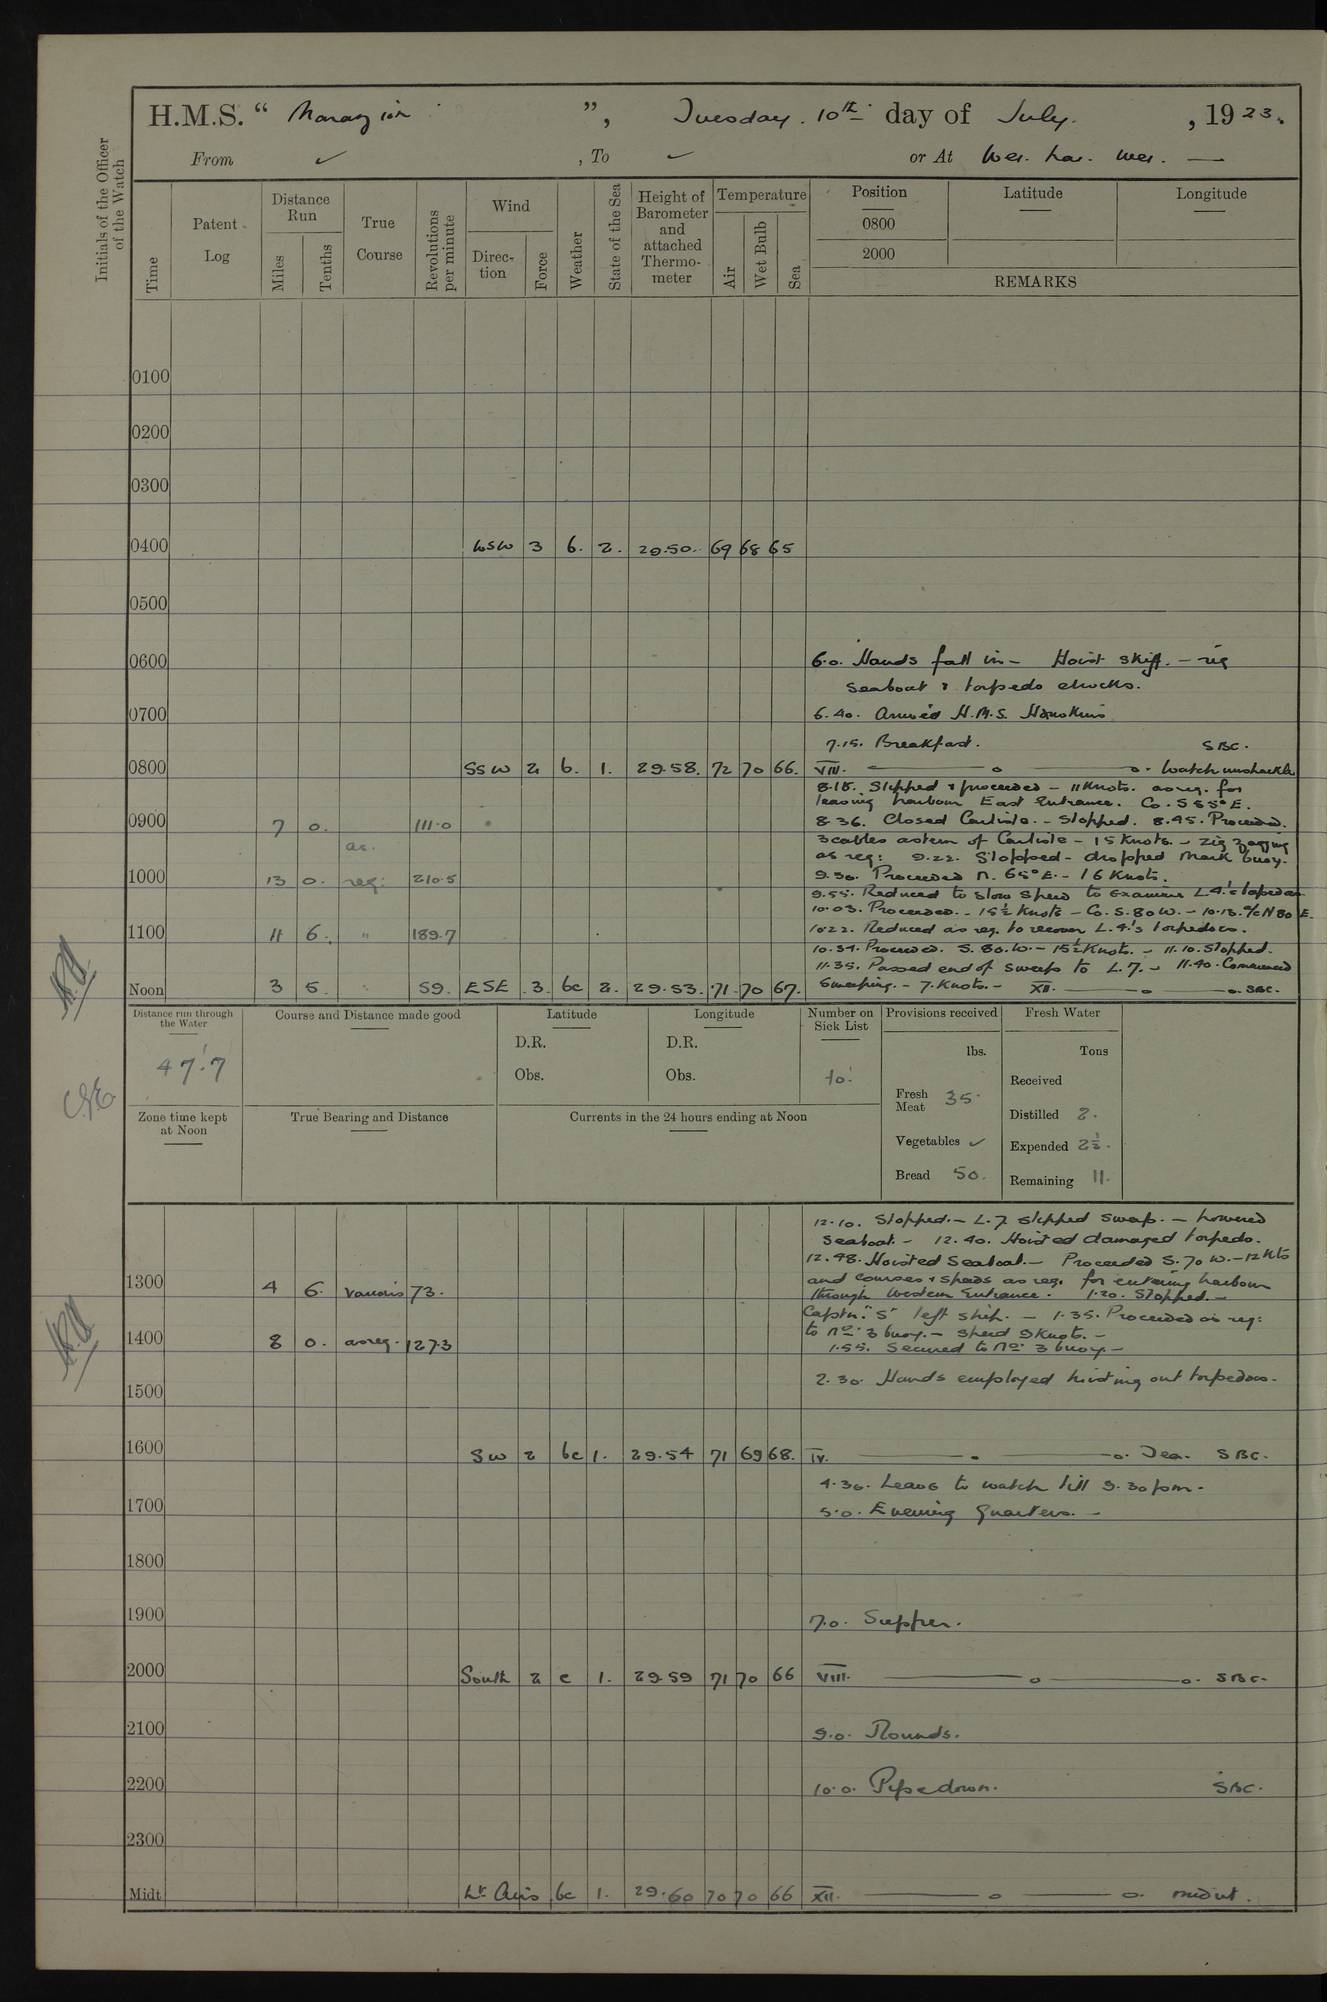 H.M.S. “ Marazion ”, Tuesday. 10th day of July. , 1923.
From ✓ , To ✓ or At Wei. hai. wei. —
Initials of the Officer of the Watch
Time
Patent Log
Distance Run
Miles
Tenths
True Course
Revolutions per minute
Wind
Direction
Force
Weather
State of the Sea
Height of Barometer and attached Thermometer
Temperature
Air
Wet Bulb
Sea
Position
0800
2000
Latitude
Longitude
REMARKS
0100
0200
0300
0400 WSW 3 b. 2. 29.50. 69 68 65
0500
0600 6.0. Hands fall in – Hoist skiff. – rig
seaboat & torpedo chocks.
0700 6.40. H.M.S.
7.15. Breakfast. SBC.
0800 SSW 2 b. 1. 29.58. 72 70 66. VIII. ——— o ——— o. Watch
8.15. Slipped & proceeded – 11 Knots. as req. for
leaving harbour East Entrance. Co. S 85° E.
0900 7 0. 111.0 8.36. Closed Carlisle. – Stopped. 8.45. Proceeded.
as. 3 cables astern of Carlisle – 15 Knots. – zig zagging
as req: 9.22. Stopped – dropped mark buoy.
1000 13 0. req: 210.5 9.30. Proceeded N. 65° E. – 16 Knots.
9.55. Reduced to slow speed to examine L.4.'s torpedoes
10.03. Proceeded. – 15½ Knots – Co. S. 80 W. – 10.13. a/c N 80 E.
1100 11 6. " 189.7 10.22. Reduced as req. to recover L.4.'s torpedoes.
10.34. Proceeded. S. 80. W. – 15½ Knots. – 11.10. Stopped.
11.35. Passed end of sweep to L.7. – 11.40. Commenced
Noon 3 5. " 59. ESE 3. bc 2. 29.53. 71 70 67. Sweeping. – 7. Knots. – XII. ——— o ——— o. SBC.
Distance run through the Water
47.7
Course and Distance made good
Latitude
D.R.
Obs.
Longitude
D.R.
Obs.
Number on Sick List
10.
Provisions received
lbs.
Fresh Meat 35.
Vegetables ✓
Bread 50.
Fresh Water
Tons
Received
Distilled 2.
Expended 2½.
Remaining 11.
Zone time kept at Noon
True Bearing and Distance
Currents in the 24 hours ending at Noon
12.10. Stopped. – L.7. slipped sweep. – Lowered
seaboat. – 12.40. Hoisted damaged torpedo.
12.48. Hoisted seaboat. – Proceeded S. 70 W. – 12 Kts
1300 4 6. various 73. and courses & speeds as req. for entering harbour
through Western Entrance. 1.20. Stopped. –
Captn. "S" left ship. – 1.35. Proceeded as req:
1400 8 0. as req. 127.3 to No. 3 buoy. – speed 9 Knots. –
1.55. Secured to No. 3 buoy. –
1500 2.30. Hands employed hoisting out torpedoes.
1600 SW 2 bc 1. 29.54 71 69 68. IV. ——— o ——— o. Tea. SBC.
4.30. Leave to watch till 9.30 pm.
1700 5.0. Evening Quarters. –
1800
1900 7.0. Supper.
2000 South 2 c 1. 29.59 71 70 66 VIII. ——— o ——— o. SBC.
2100 9.0. Rounds.
2200 10.0. Pipe down. SBC.
2300
Midt. Lt. Airs bc 1. 29.60 70 70 66 XII. ——— o ——— o.